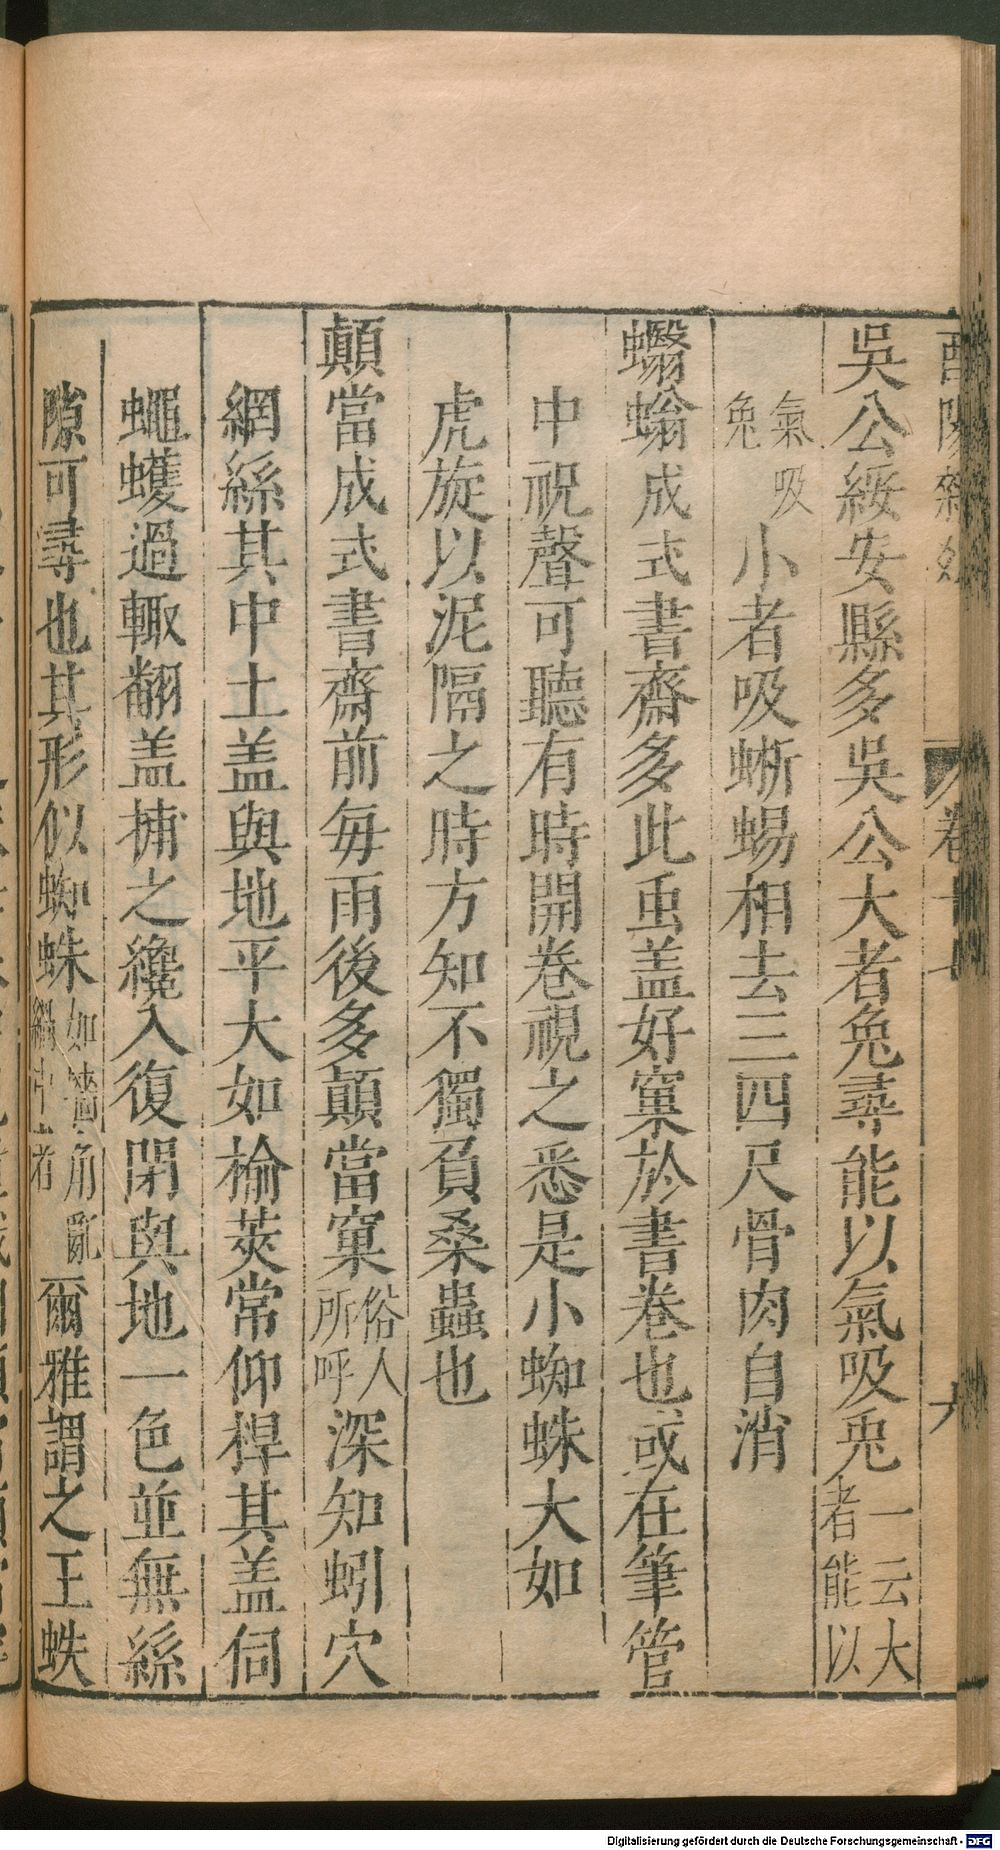 酉陽雜俎 卷十七 九
吳公綏安縣多吳公大者兔尋能以氣吸兎一云大者能以
氣吸兔小者吸蜥蜴相去三四尺骨肉自消
蠮螉成式書齋多此䖝盖好窠於書卷也或在筆管
中祝聲可聽有時開卷視之悉是小蜘蛛大如
虎旋以泥隔之時方知不獨負桑蟲也
顛當成式書齋前每雨後多顛當窠俗人所呼深知蚓穴
網絲其中土盖與地平大如榆莢常仰桿其盖伺
蠅蠖過輙翻盖捕之纔入復閉與地一色並無絲
隙可尋也其形似蜘蛛如墻角亂網中者爾雅謂之王蛛
Digitalisierung gefördert durch die Deutsche Forschungsgemeinschaft - DFG